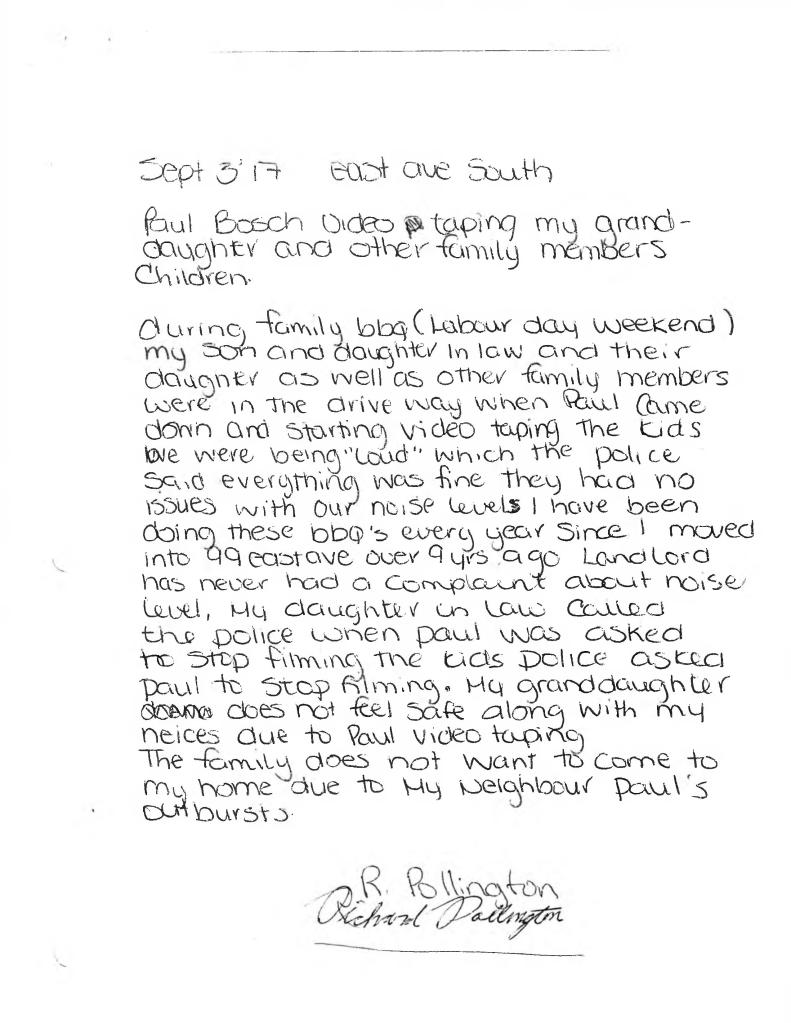 Sept 3'17 East ave South
Paul Bosch Video taping my grand-
daughter and other family members
Children.
during family bbq (Labour day weekend)
my son and daughter in law and their
daughter as well as other family members
were in the drive way when Paul Came
down and starting video taping the kids
we were being "loud" which the police
said everything was fine they had no
issues with our noise levels I have been
doing these bbq's every year Since I moved
into 99 east ave over 9 yrs ago Landlord
has never had a complaint about noise
level, My daughter in law called
the police when paul was asked
to stop filming the kids police asked
paul to stop filming. My granddaughter
does not feel safe along with my
neices due to Paul video taping
The family does not want to come to
my home due to My Neighbour paul's
outbursts.
R. Pollington
Richard Pollington